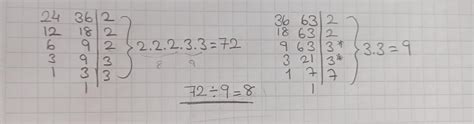 24 36 | 2
12 18 | 2
6 9 | 2
3 9 | 3
1 3 | 3
1
2.2.2.3.3=72
8 9
36 63 | 2
18 63 | 2
9 63 | 3*
3 21 | 3*
1 7 | 7
1
3.3=9
72÷9=8